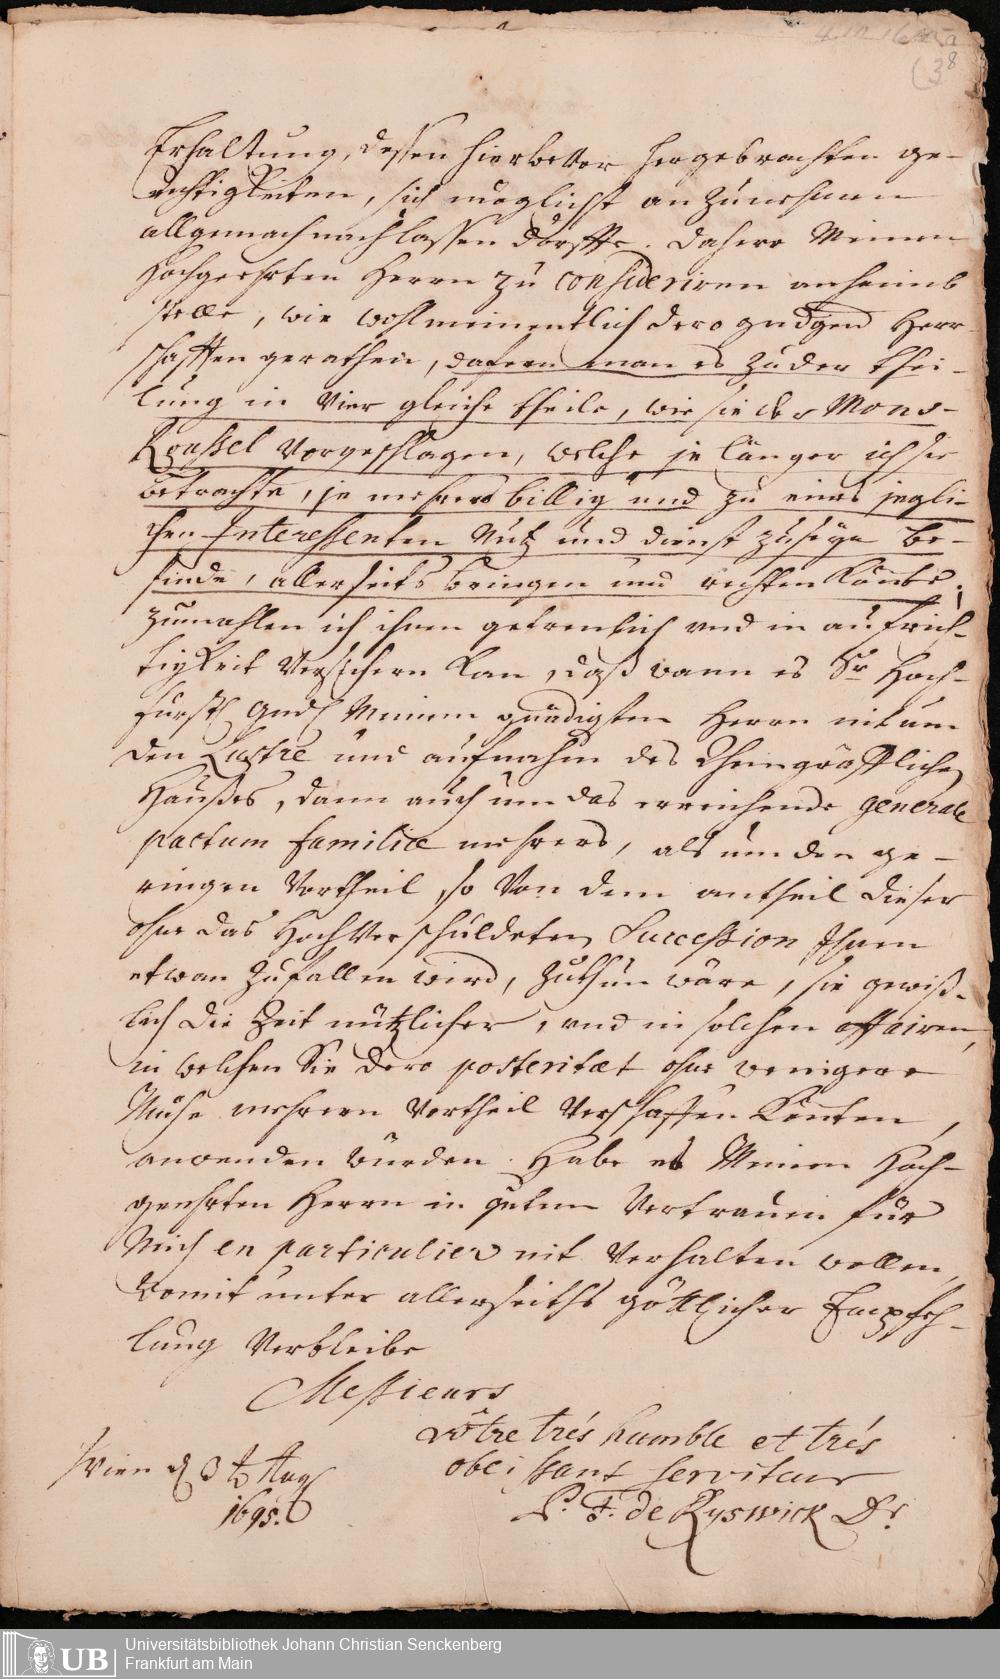 (38
Erhaltung, dessen hierbevor hergebrachten ge-
rechtigkeiten, sich möglichst an zunehmen
allgemach nachlassen dörffte. Dahero Meinem
Hochgeehrten Herrn zu consideriren anheimb
stelle, wie wohlmeinentlich dero gndgen Herr-
schafften gerathen, dafern man es zu der thei-
lung in Vier gleiche theile, wie sie der Mons.
Roussel Vorgeschlagen, welche je länger ich sie
betrachte, je mehrers billig und zu eines jegli-
chen Interessenten Nutz und dienst zuseyn be-
finde, allerseits bringen und richten Könte.
zumahlen ich ihnen getreulich und in aufrich-
tigkeit Versichern kan, daß wann es Sr. Hoch-
fürstl Gndl Meinem gnädigsten Herrn nit um
den Lustre und aufnahm des Rheingräfflichen
Haußes, dann auch um das erreichende generale
pactum familiæ mehrers, als um den ge-
ringen Vortheil, so Von dem antheil dieser
ohne das HochVerschuldeten Succession Ihnen
etwan Zufallen wird, Zuthun wäre, sie gewiß-
lich die Zeit nützlicher, und in solchen affairen,
in welchen Sie dero posteritæt ohne wenigere
Mühe mehrern Vortheil Verschaffen Könten,
anwenden würden. Habe es Meinem Hoch-
geehrten Herrn in gutem Vertrauen für
Mich en particulier nit Verhalten wollen,
Womit unter allerseiths göttlicher Empfeh-
lung Verbleibe
Messieurs
vôtre trés humble et trés
obeissant serviteur
P. F. de Ryswick Dr.
Wien d 3 t Aug
1695.
UB Universitätsbibliothek Johann Christian Senckenberg
Frankfurt am Main